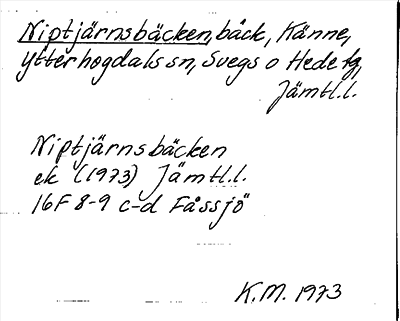 Niptjärnsbäcken, bäck, Känne,
Ytterhogdals sn, Svegs o Hede tg,
Jämtl.l.
Niptjärnsbäcken
ek (1973) Jämtl.l.
16F 8-9 c-d Fåssjö
K.M. 1973